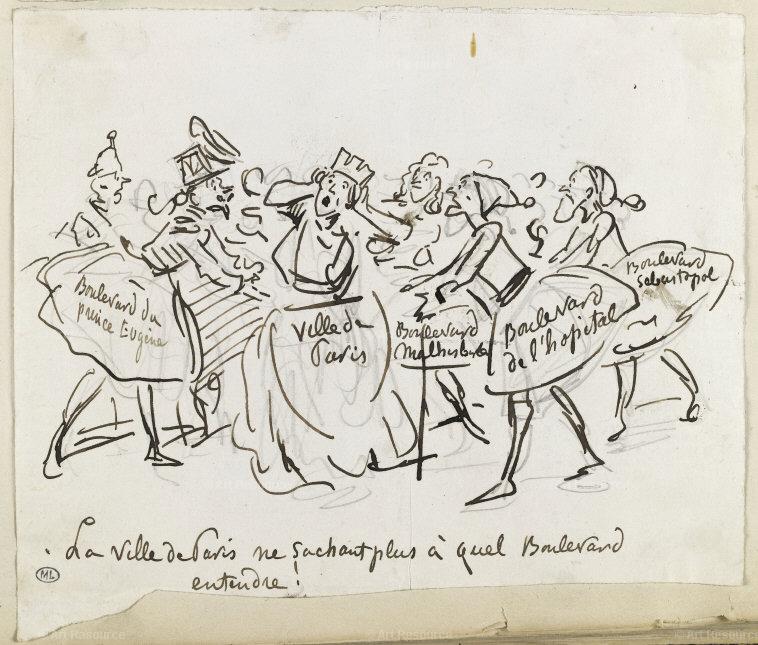 Boulevard du
prince Eugène
Ville de
Paris
Boulevard
Malhesherbe
Boulevard
de l'hopital
Boulevard
Sebastopol
La Ville de Paris ne sachant plus à quel Boulevard
entendre!
ML
Art Resource
Art Resource
Art Resource